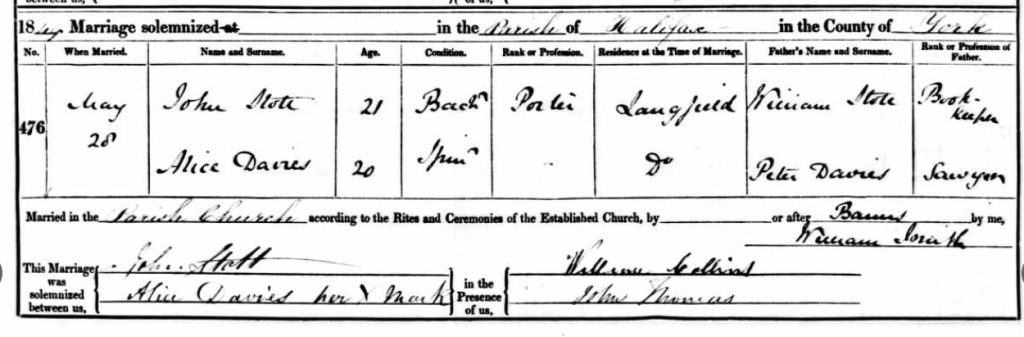 Marriage solemnized at in the Parish of Halifax in the County of York
No. When Married. Name and Surname. Age. Condition. Rank or Profession. Residence at the Time of Marriage. Father's Name and Surname. Rank or Profession of Father.
476 May 28 John Stott 21 Bachr Porter Langfield William Stott Book-keeper
Alice Davies 20 Spinr Do Peter Davies Sawyer
Married in the Parish Church according to the Rites and Ceremonies of the Established Church, by or after Banns by me,
William Smith
This Marriage was solemnized between us, John Stott in the Presence of us, William Collins
Alice Davies her X Mark John Thomas